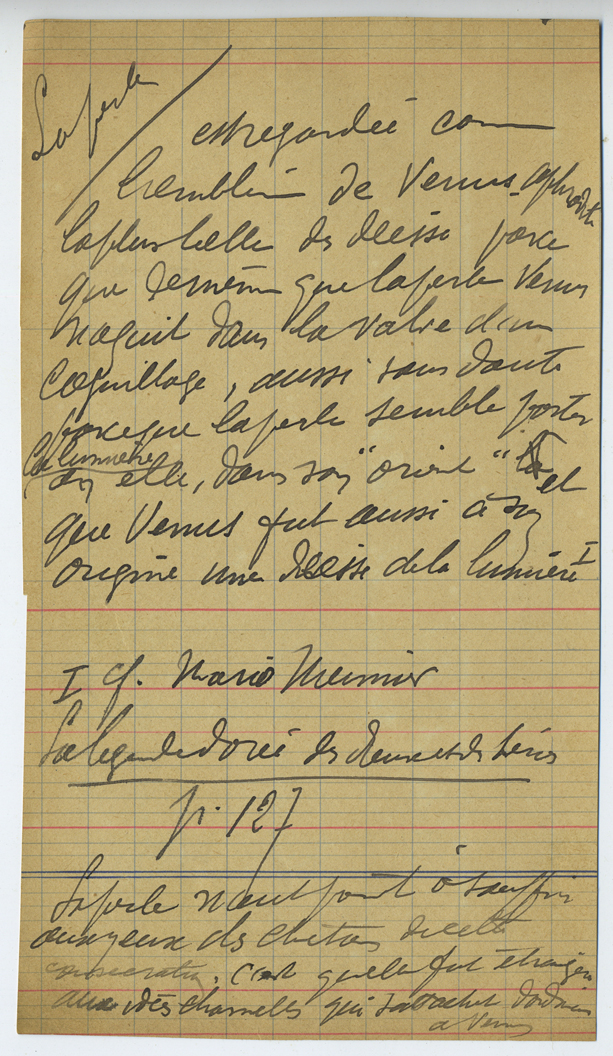 La perle
est regardée comme
l'emblème de Venus-aphrodite
la plus belle des déesses parce
que de même que la perle Venus
naquit dans la valve d'un
coquillage, aussi sans doute
parce que la perle semble porter
la lumière
en elle, dans son "orient" et
que Venus fut aussi à son
origine une déesse de la lumière I
I cf. Mario Meunier
La légende dorée des dieux et des héros
p. 127
La perle n'eut point à souffrir
aux yeux des chrétiens de cette
consécration. C'est qu'elle fut étrangère
aux idées charnelles qui s'attachent d'ordinaire
à Venus